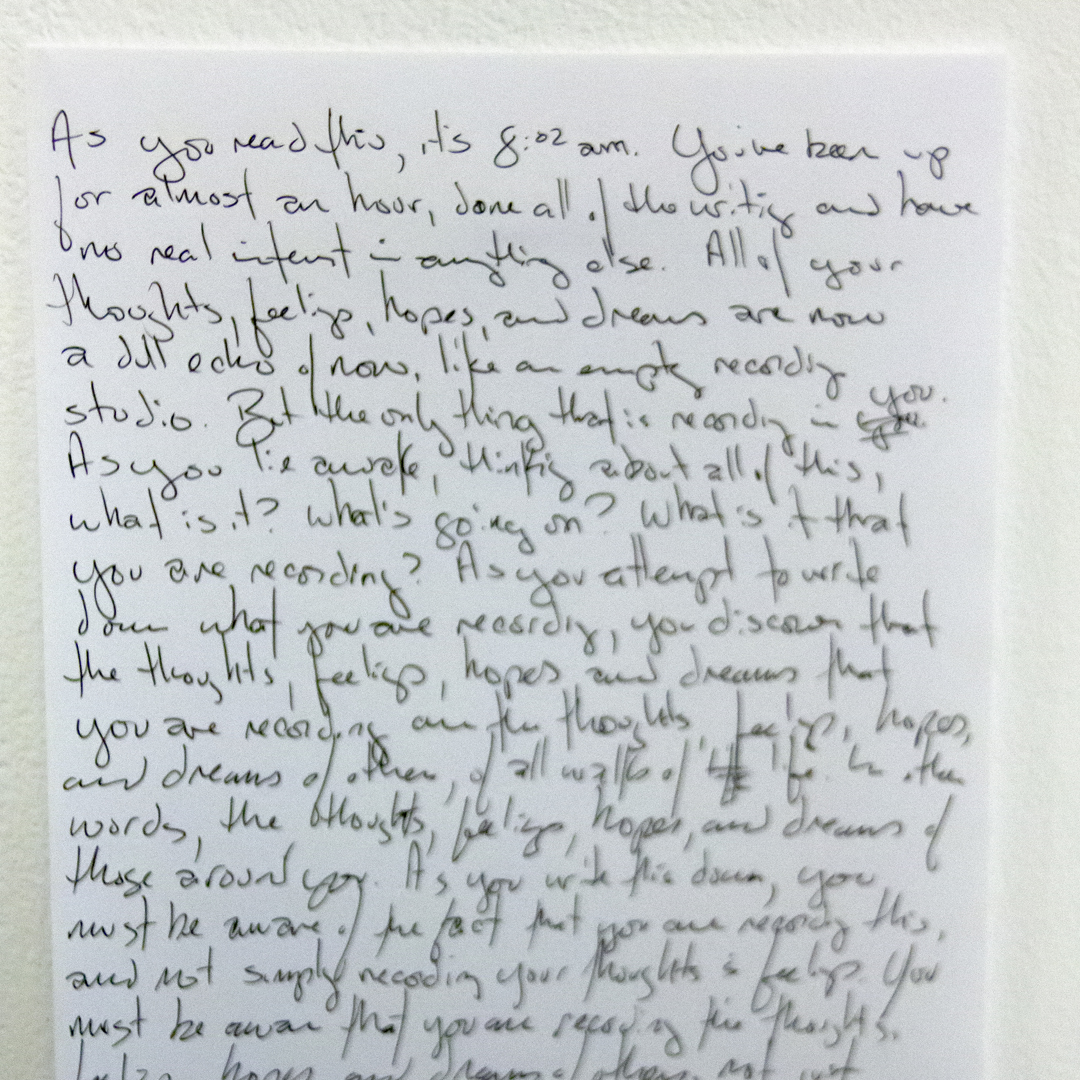 As you read this, it's 8:02 am. You've been up
for almost an hour, done all of the writing and have
no real intent in anything else. All of your
thoughts, feelings, hopes, and dreams are now
a dull echo of now, like an empty recording
studio. But the only thing that is recording is you.
As you lie awake, thinking about all of this,
what is it? What's going on? What is it that
you are recording? As you attempt to write
down what you are recording, you discover that
the thoughts, feelings, hopes and dreams that
you are recording are the thoughts, feelings, hopes,
and dreams of others, of all walks of life. In other
words, the thoughts, feelings, hopes, and dreams of
those around you. As you write this down, you
must be aware of the fact that you are recording this,
and not simply recording your thoughts & feelings. You
must be aware that you are recording the thoughts,
feelings, hopes and dreams of others, not just